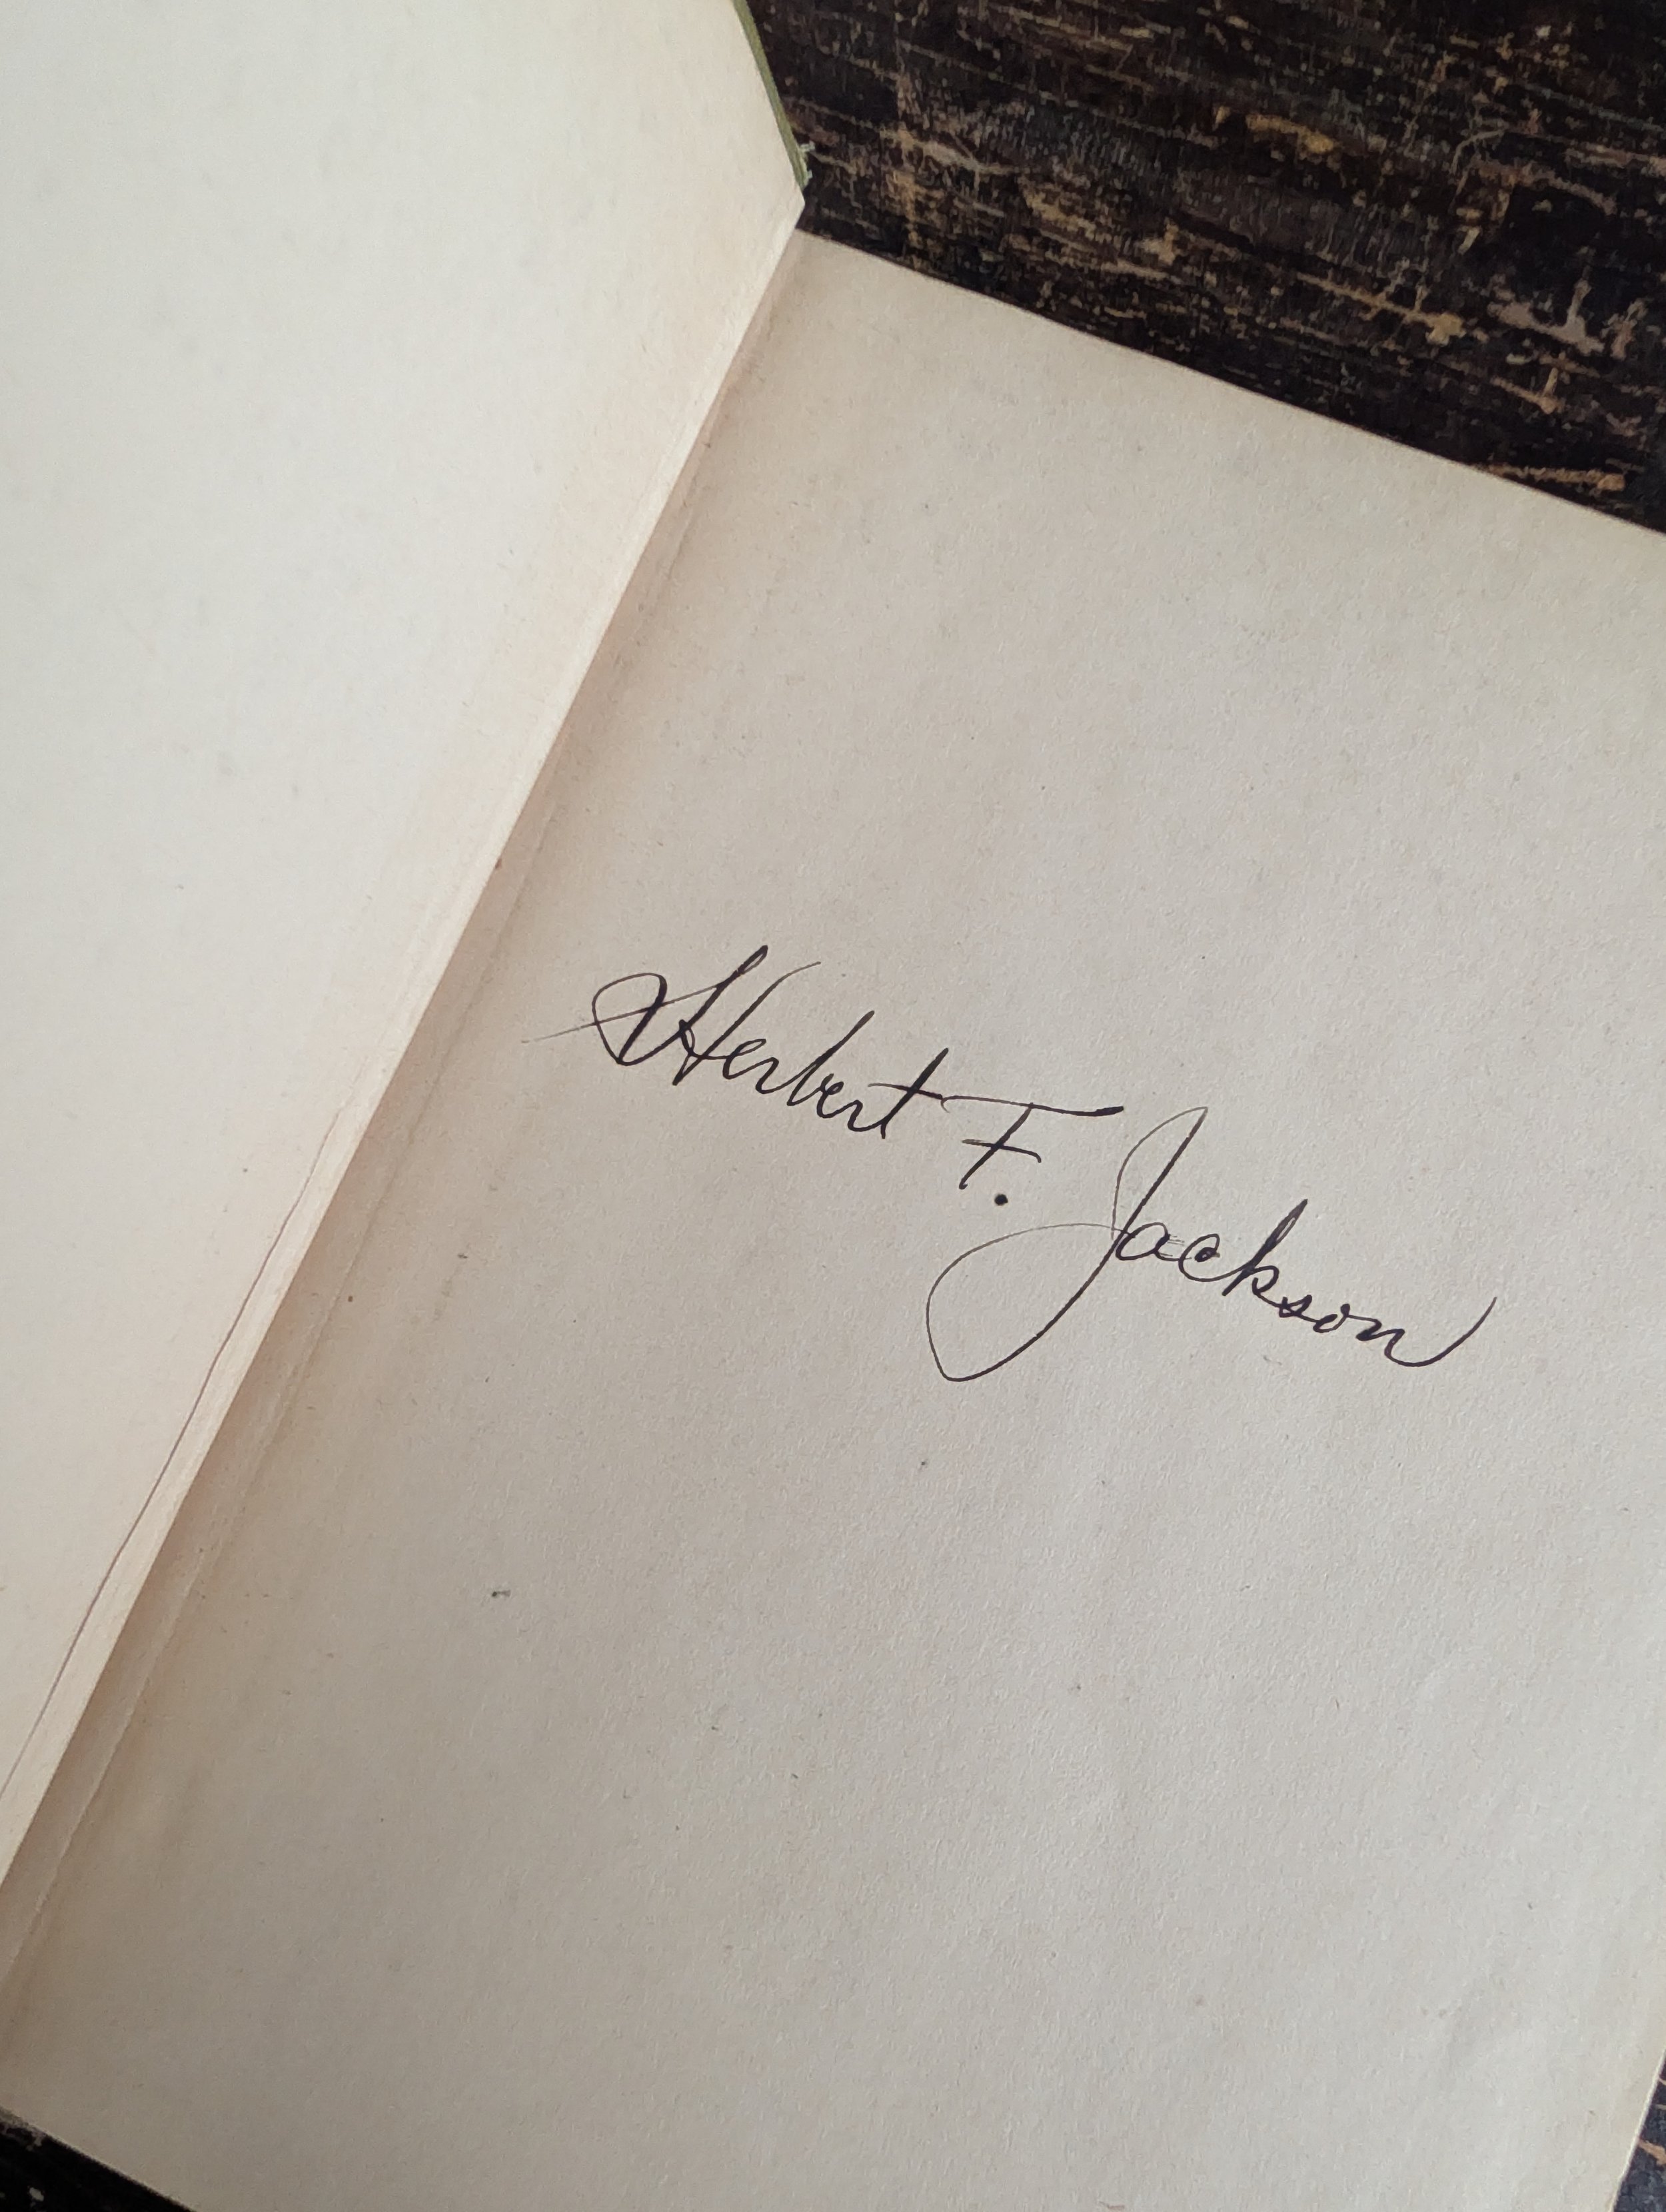 Herbert F. Jackson